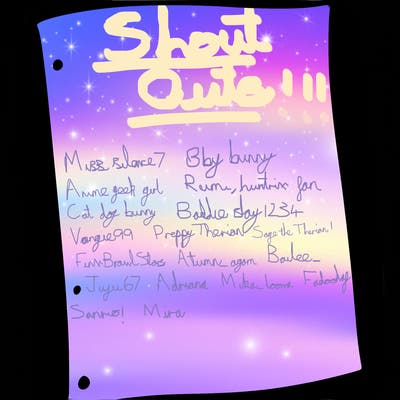 Shout
Outs!!!
Miss silence7 Bby bunny
Anime geek girl Rumi, huntrix fan
Cat dog bunny Baddie slay1234
Vangie99 Preppy Therian Sage the Therian!
Finn Brawl Stars Atumn again Bailee_
Juju67 Adriana
Sanrio! Mira